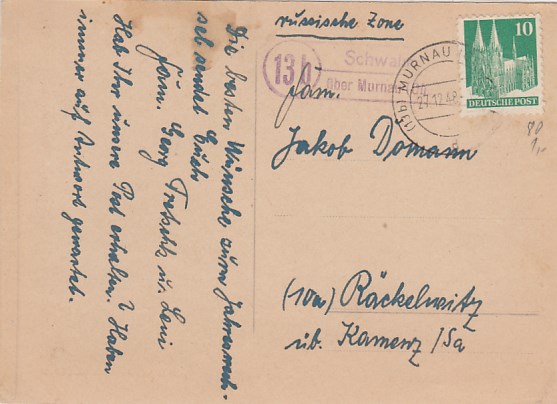 Die besten Wünsche zum Jahreswech-
sel sendet Euch
Fam. Georg u. Leni
Hab Ihr unsere Post erhalten? Haben
immer auf Antwort gewartet.
russische Zone
13b
Schwai
über Murnau
(13b) MURNAU
27.12.48
10
DEUTSCHE POST
Fam.
Jakob Domann
(10a) Räckelwitz
üb. Kamenz /Sa